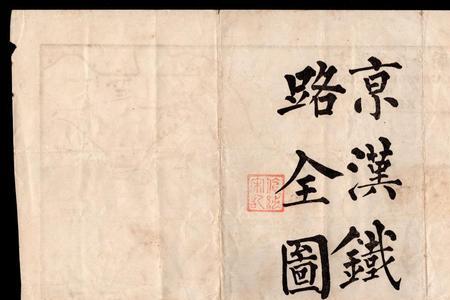 京漢鐵
路全圖